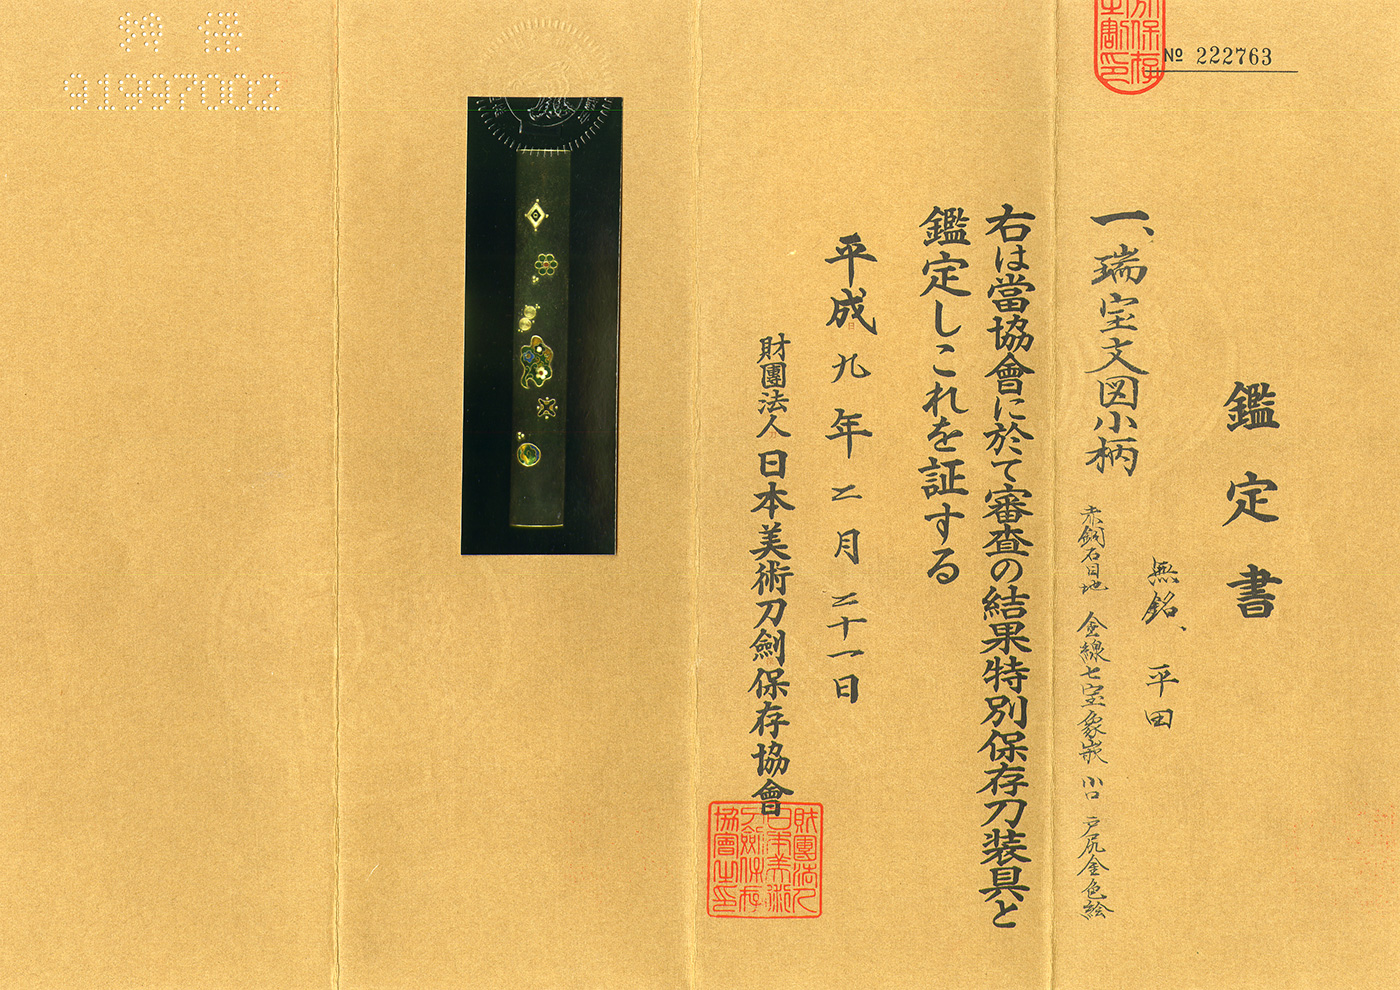 特保
91997002
№ 222763
鑑定書
無銘、平田
一、瑞宝文図小柄
赤銅石目地 金線七宝象嵌 小口 戸尻金色絵
右は當協會に於て審査の結果特別保存刀装具と
鑑定しこれを証する
平成九年二月二十一日
財團法人日本美術刀劍保存協會
財團法人
日本美術
刀劍保存
協會之印